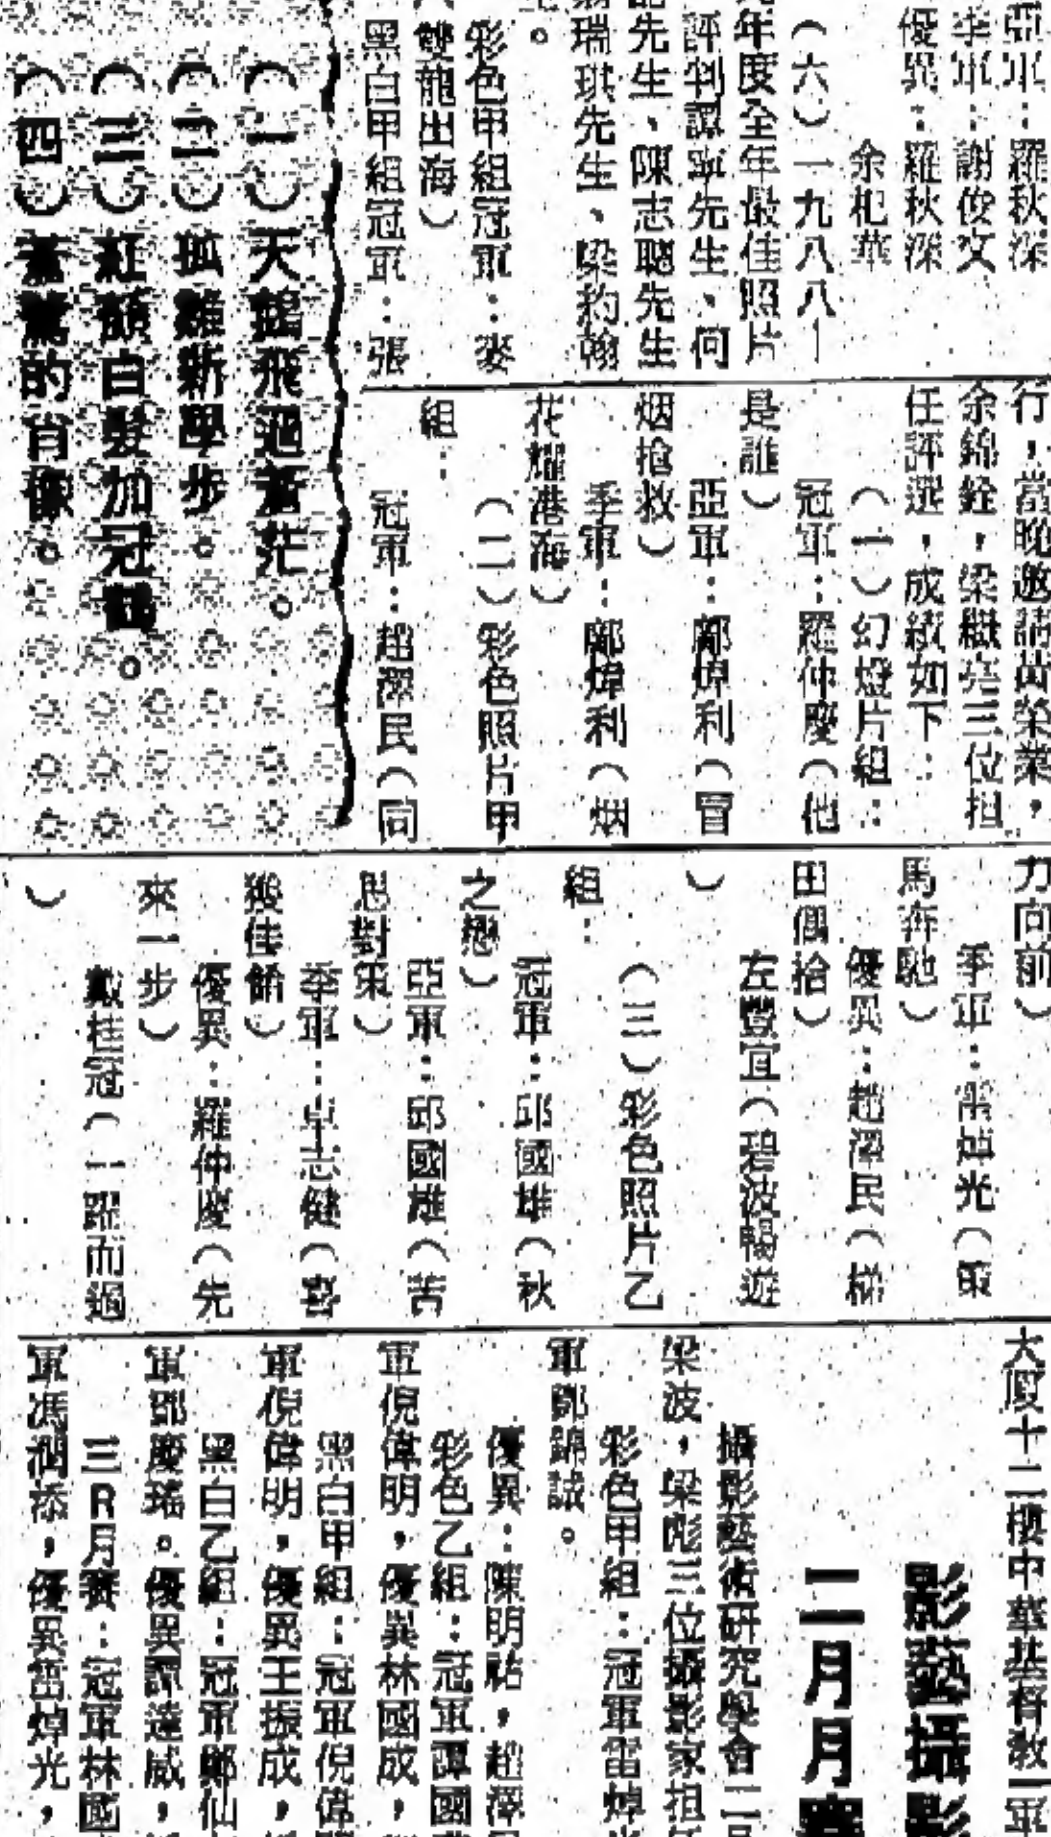 亞軍：羅秋深
季軍：謝俊文
優異：羅秋深
余杞華
（六）一九八八—
年度全年最佳照片
評判譚寧先生、何
先生、陳志聰先生
瑞琪先生、梁約翰
。
彩色甲組冠軍：麥
雙龍出海）
黑白甲組冠軍：張
（一）天鵝飛過蒼茫。
（二）孤雛新學步。
（三）紅顏白髮加冠
（四）的肖像。
行，當晚邀請黃榮業，
余錦銓，梁繼堯三位担
任評選，成績如下：
（一）幻燈片組：
冠軍：羅仲慶（他
是誰）
亞軍：鄺煒利（冒
烟搶救）
季軍：鄺煒利（烟
花耀港海）
（二）彩色照片甲
組：
冠軍：趙澤民（同
力向前）
季軍：焯光（策
馬奔馳）
優異：趙澤民（梯
田偶拾）
左豐宜（碧波暢遊
）
（三）彩色照片乙
組：
冠軍：邱國雄（秋
之戀）
亞軍：邱國雄（苦
思對策）
季軍：卓志健（喜
獲佳餚）
優異：羅仲慶（先
來一步）
戴桂冠（一躍而過
）
大厦十二樓中華基督教
影藝攝影
二月月賽
攝影藝術研究學會二
梁波，梁彪三位攝影家担
彩色甲組：冠軍雷焯
軍鄧錦誠。
優異：陳明祐，趙澤
彩色乙組：冠軍譚國
軍倪偉明，優異林國成，
黑白甲組：冠軍倪偉
軍倪偉明，優異王振成，
黑白乙組：冠軍鄭仙
軍鄧慶瑤。優異譚達威，
三R月賽：冠軍林國
軍馮潤添，優異雷焯光，